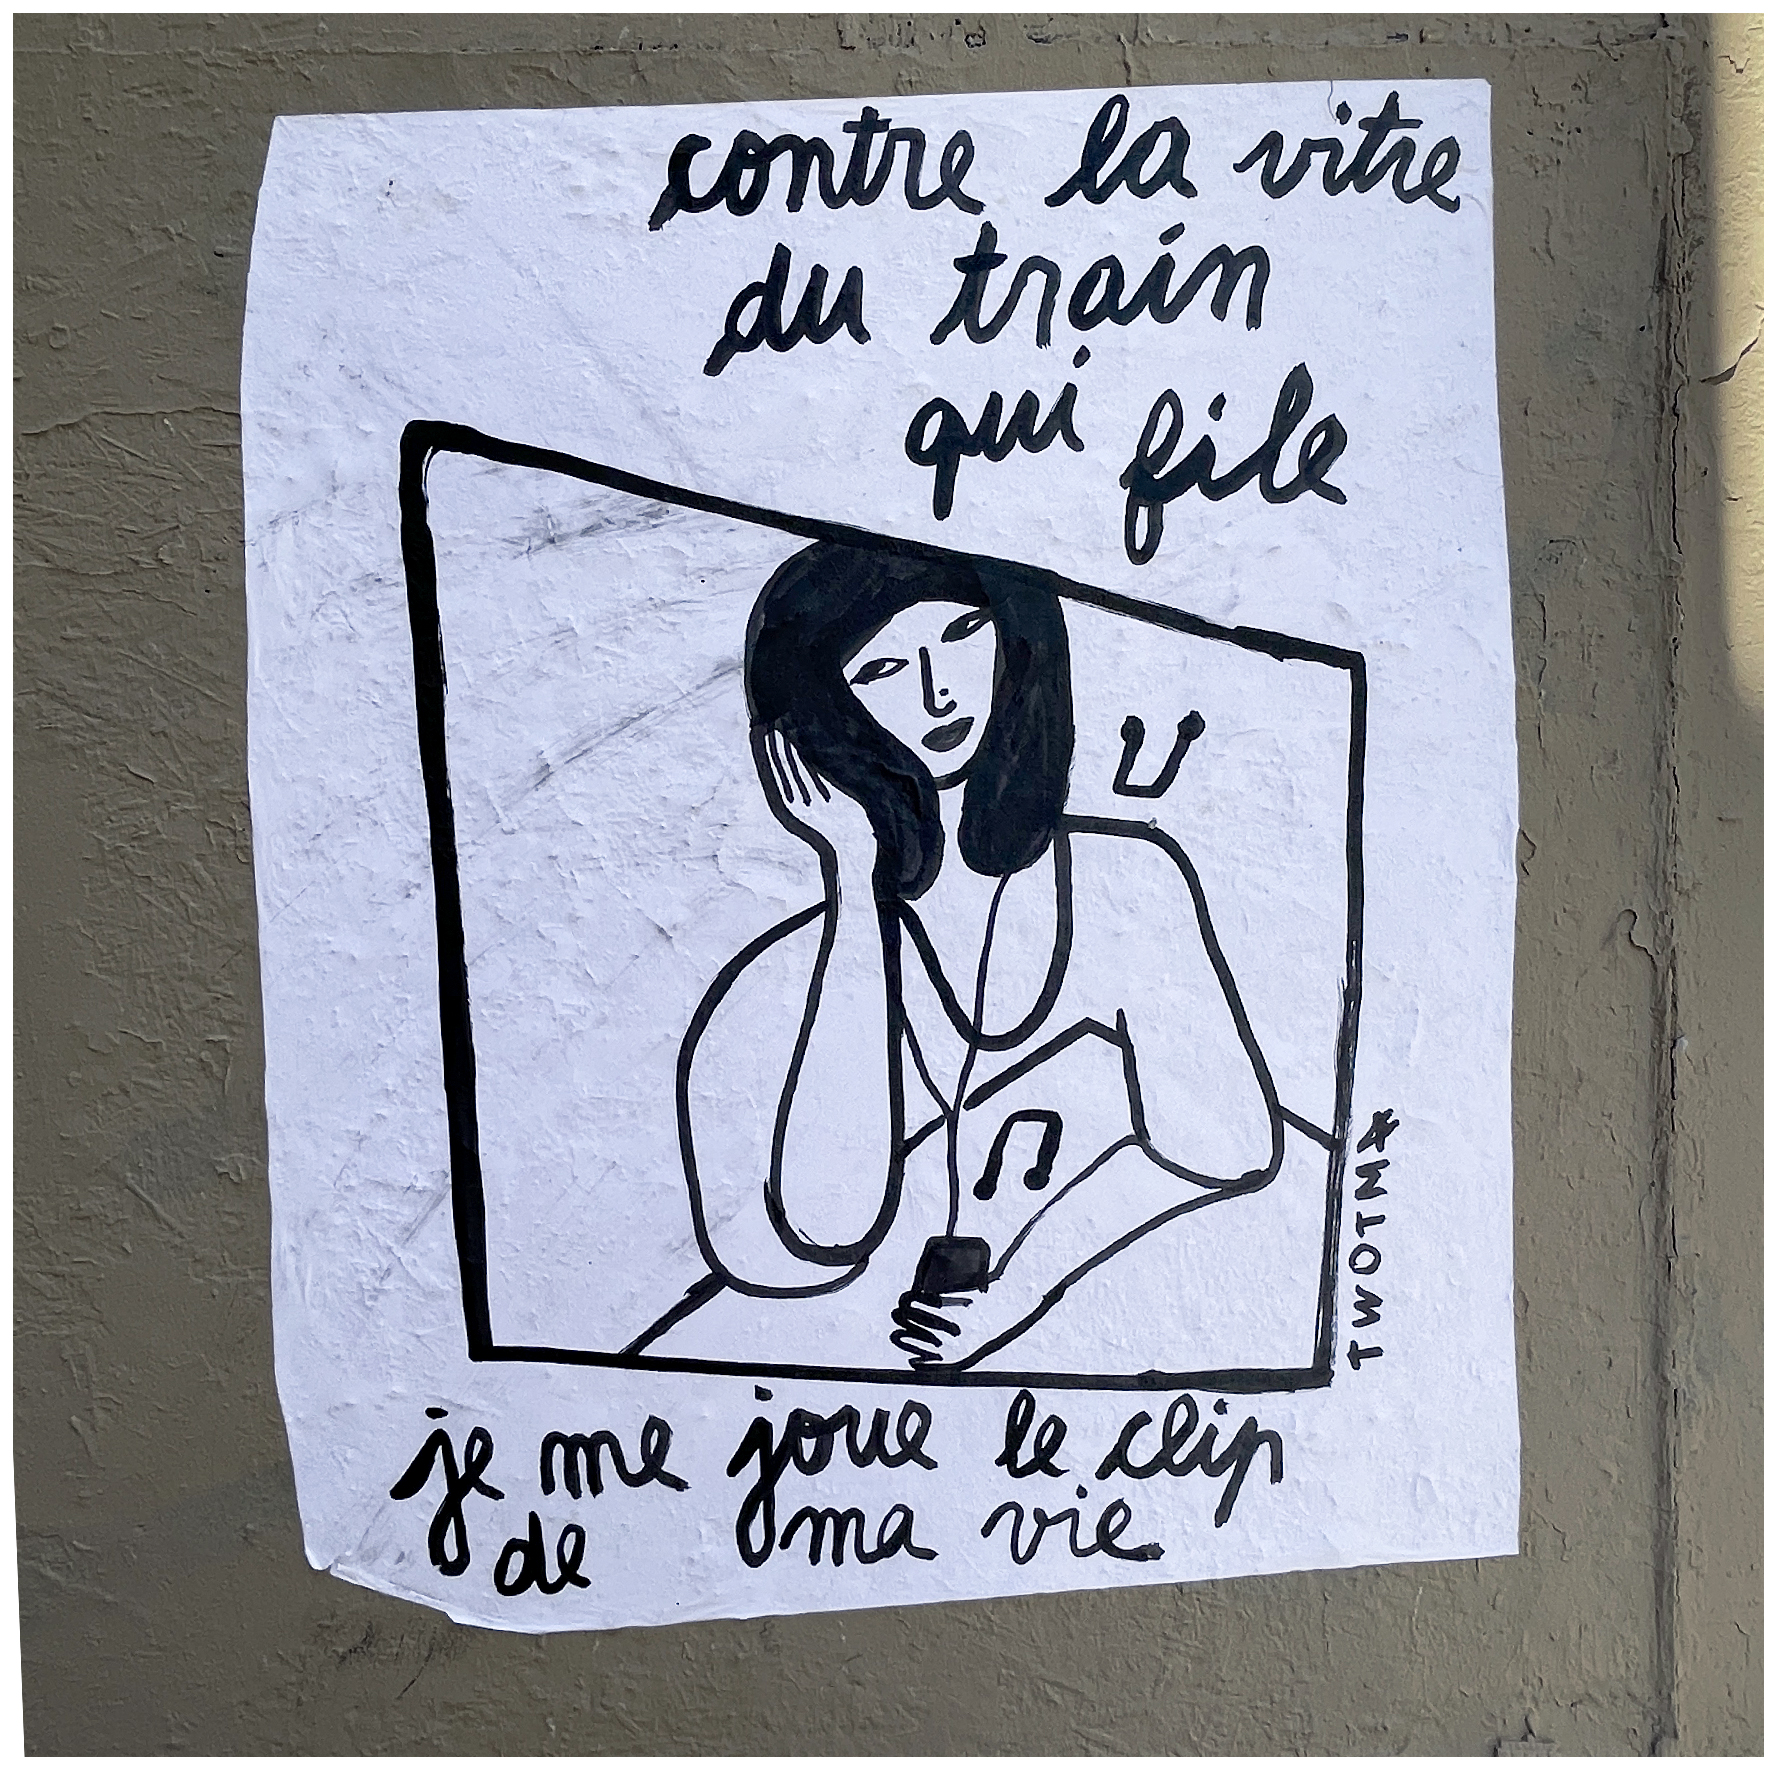 contre la vitre
du train
qui file
TWOTMA
je me joue le clip
de ma vie